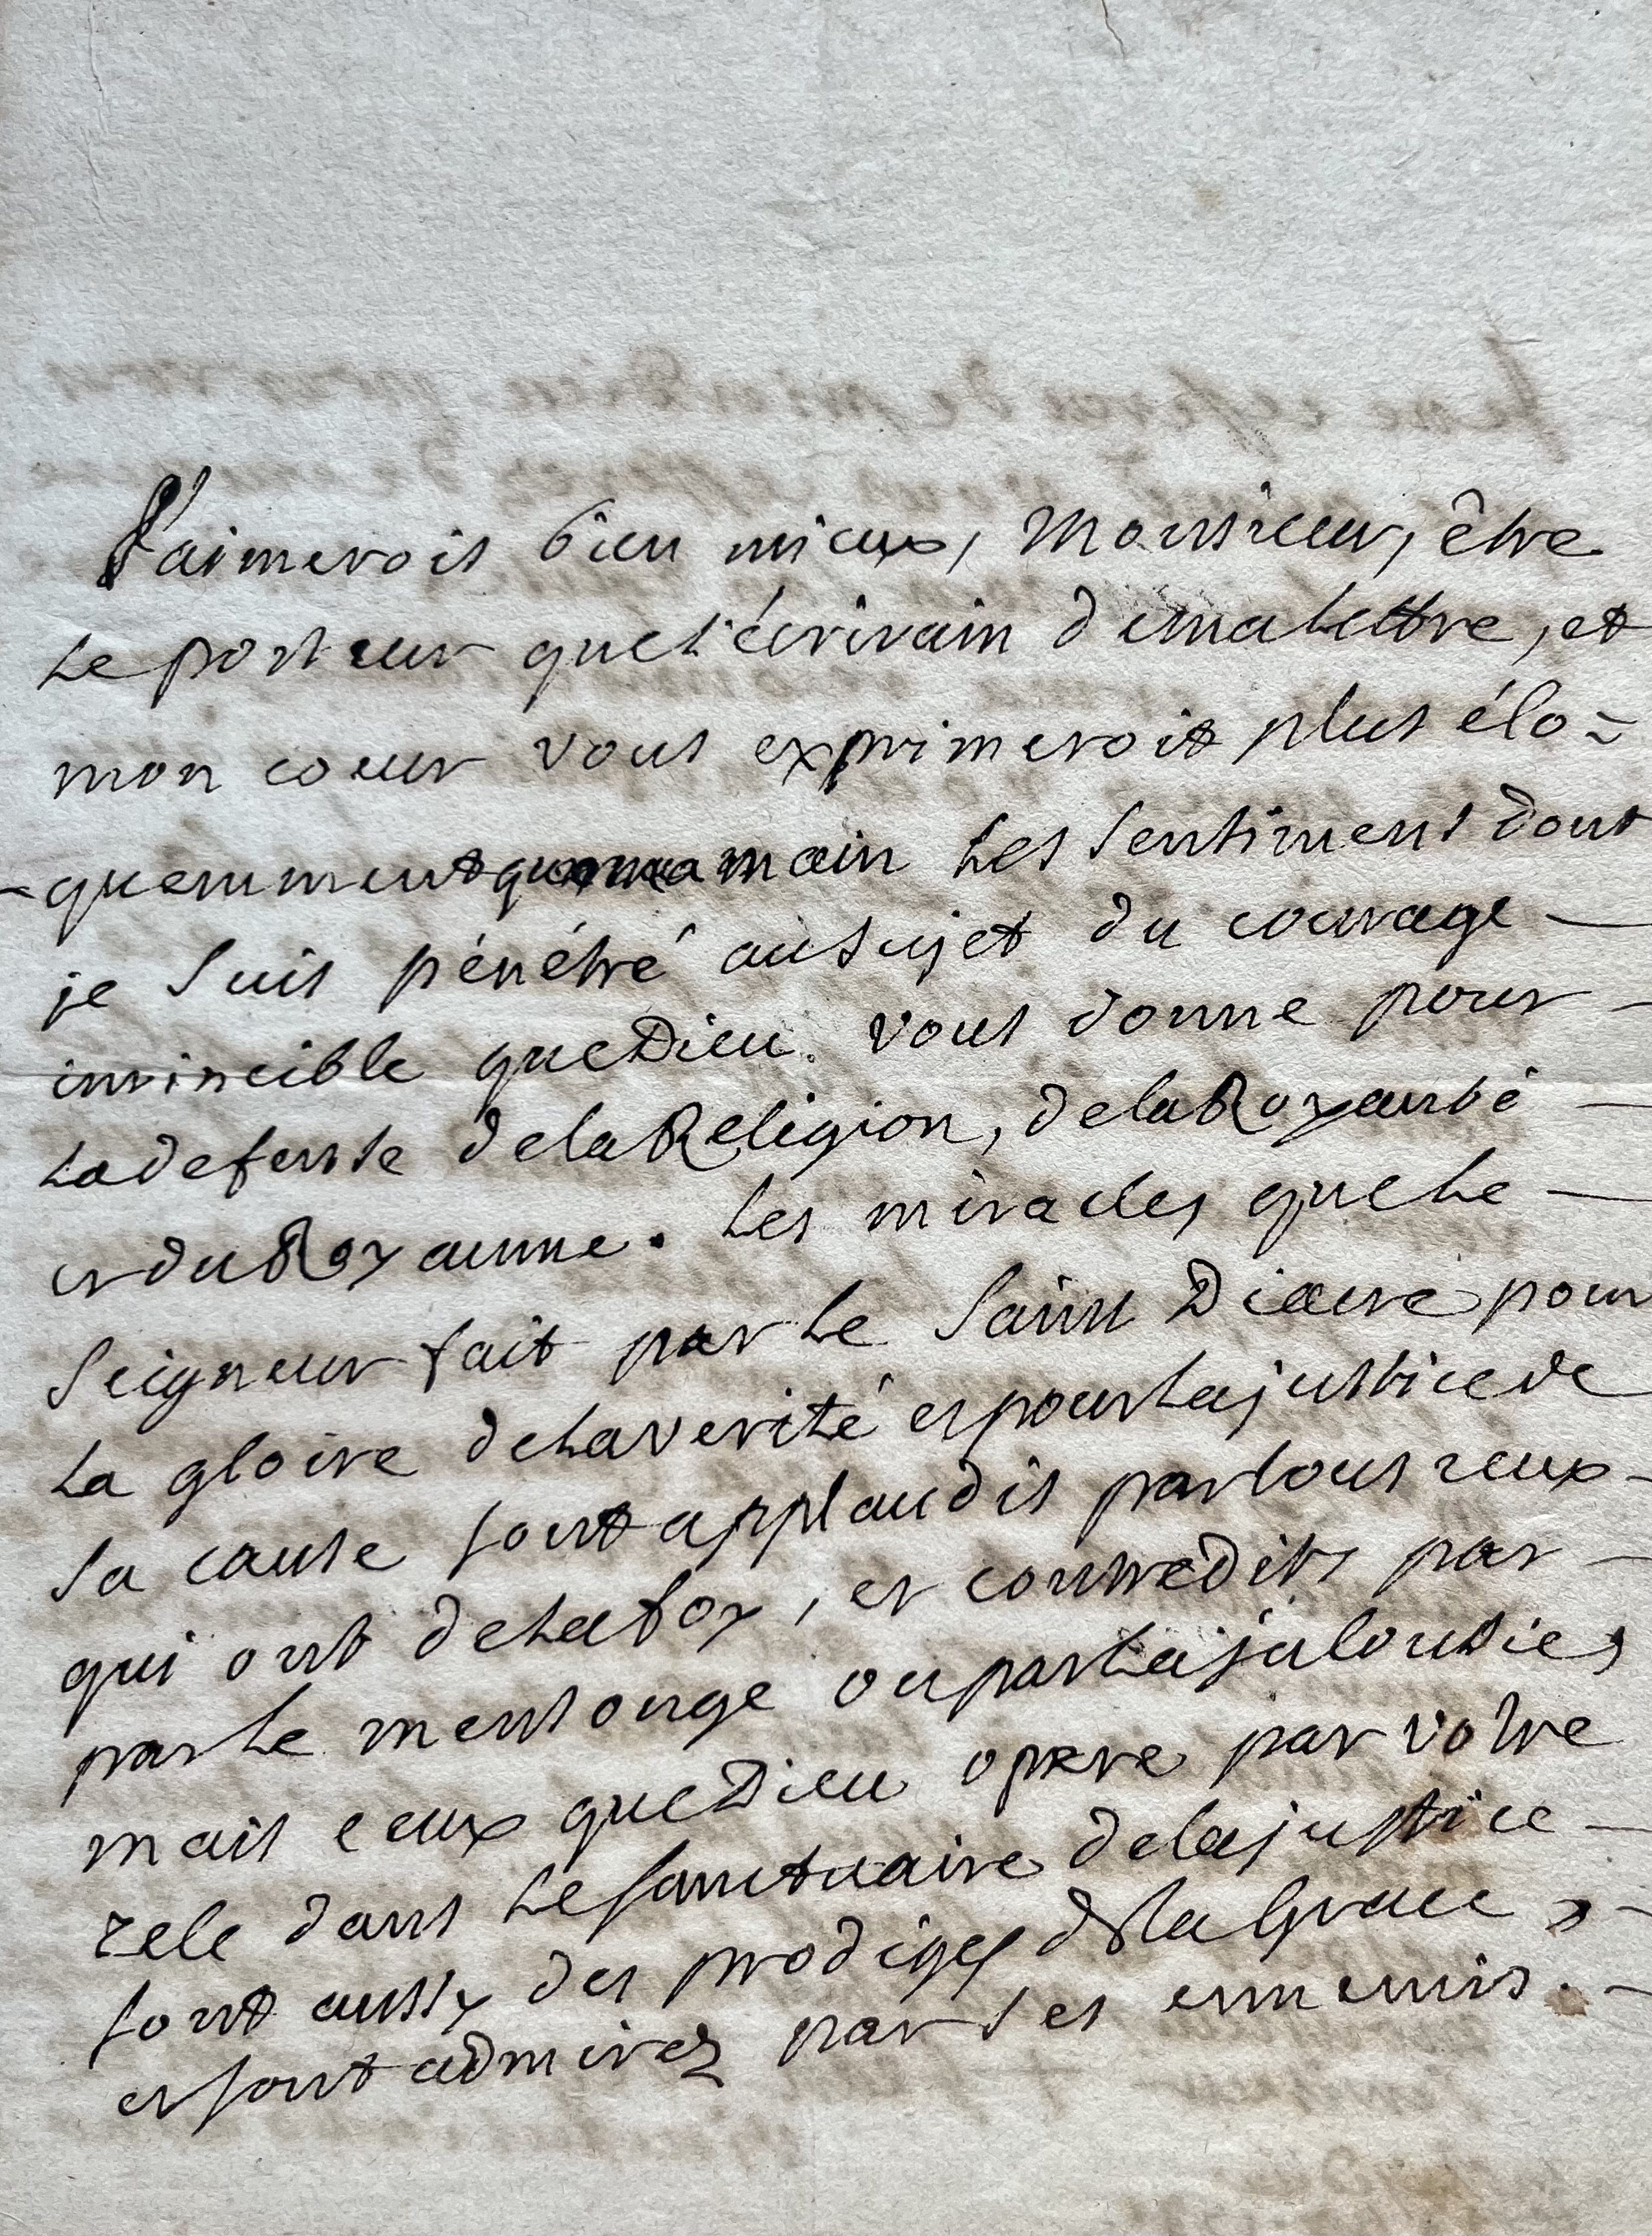 J'aimerois bien mieux, Monsieur, être
le porteur que l'écrivain de ma lettre, et
mon coeur vous exprimeroit plus élo=
-quemment que ma main les sentimens dont
je suis pénétré au sujet du courage
invincible que Dieu vous donne pour
la defense de la Religion, de la Royauté
et du Royaume. Les miracles que le
Seigneur fait par le Saint Diacre pour
la gloire de la verité et pour la justice de
sa cause sont applaudis par tous ceux
qui ont de la foy, et contredits par
par le mensonge ou par la jalousie,
mais ceux que Dieu opere par votre
zele dans le sanctuaire de la justice
sont aussy des prodiges de la Grace,
et sont admirez par ses ennemis.